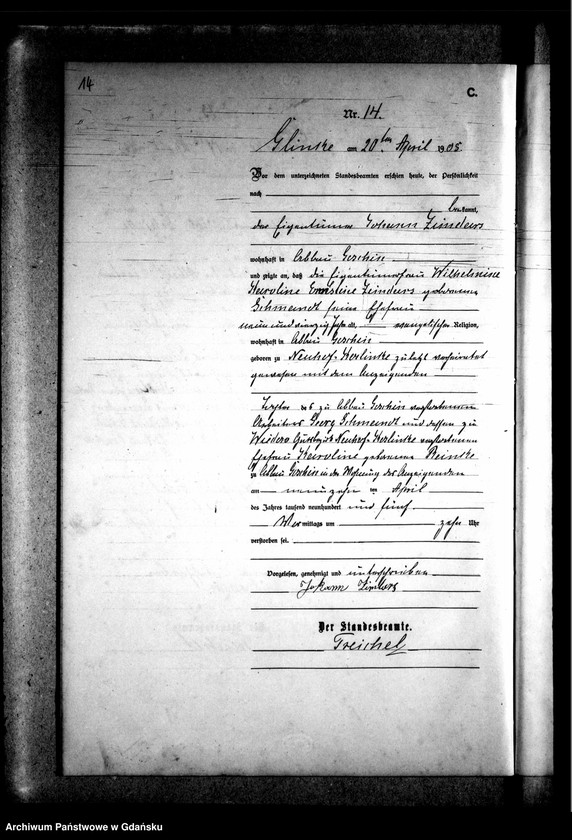 14
C.
Nr. 14.
Glinske am 20ten April 1905
Vor dem unterzeichneten Standesbeamten erschien heute, der Persönlichkeit
nach
bekannt,
der Eigentümer Johann Zinders
wohnhaft in Abbau Gerschin
und zeigte an, daß die Eigentümerfrau Wilhelmine
Karoline Ernstine Zinders geborene
Schmandt seine Ehefrau
neunundvierzig Jahre alt, evangelischer Religion,
wohnhaft in Abbau Gerschin
geboren zu Neuhof-Kerlinke zuletzt verheiratet
gewesen mit dem Anzeigenden
Tochter des zu Abbau Gerschin verstorbenen
Arbeiters Georg Schmandt und dessen zu
Gutsbezirk Neuhof-Kerlinke verstorbenen
Ehefrau Karoline geborene Reinske
zu Abbau Gerschin in der Wohnung des Anzeigenden
am neunzehn ten April
des Jahres tausend neunhundert und fünf
Vormittags um zehn Uhr
verstorben sei.
Vorgelesen, genehmigt und unterschrieben
Johann Zinders
Der Standesbeamte.
Treichel
Archiwum Państwowe w Gdańsku